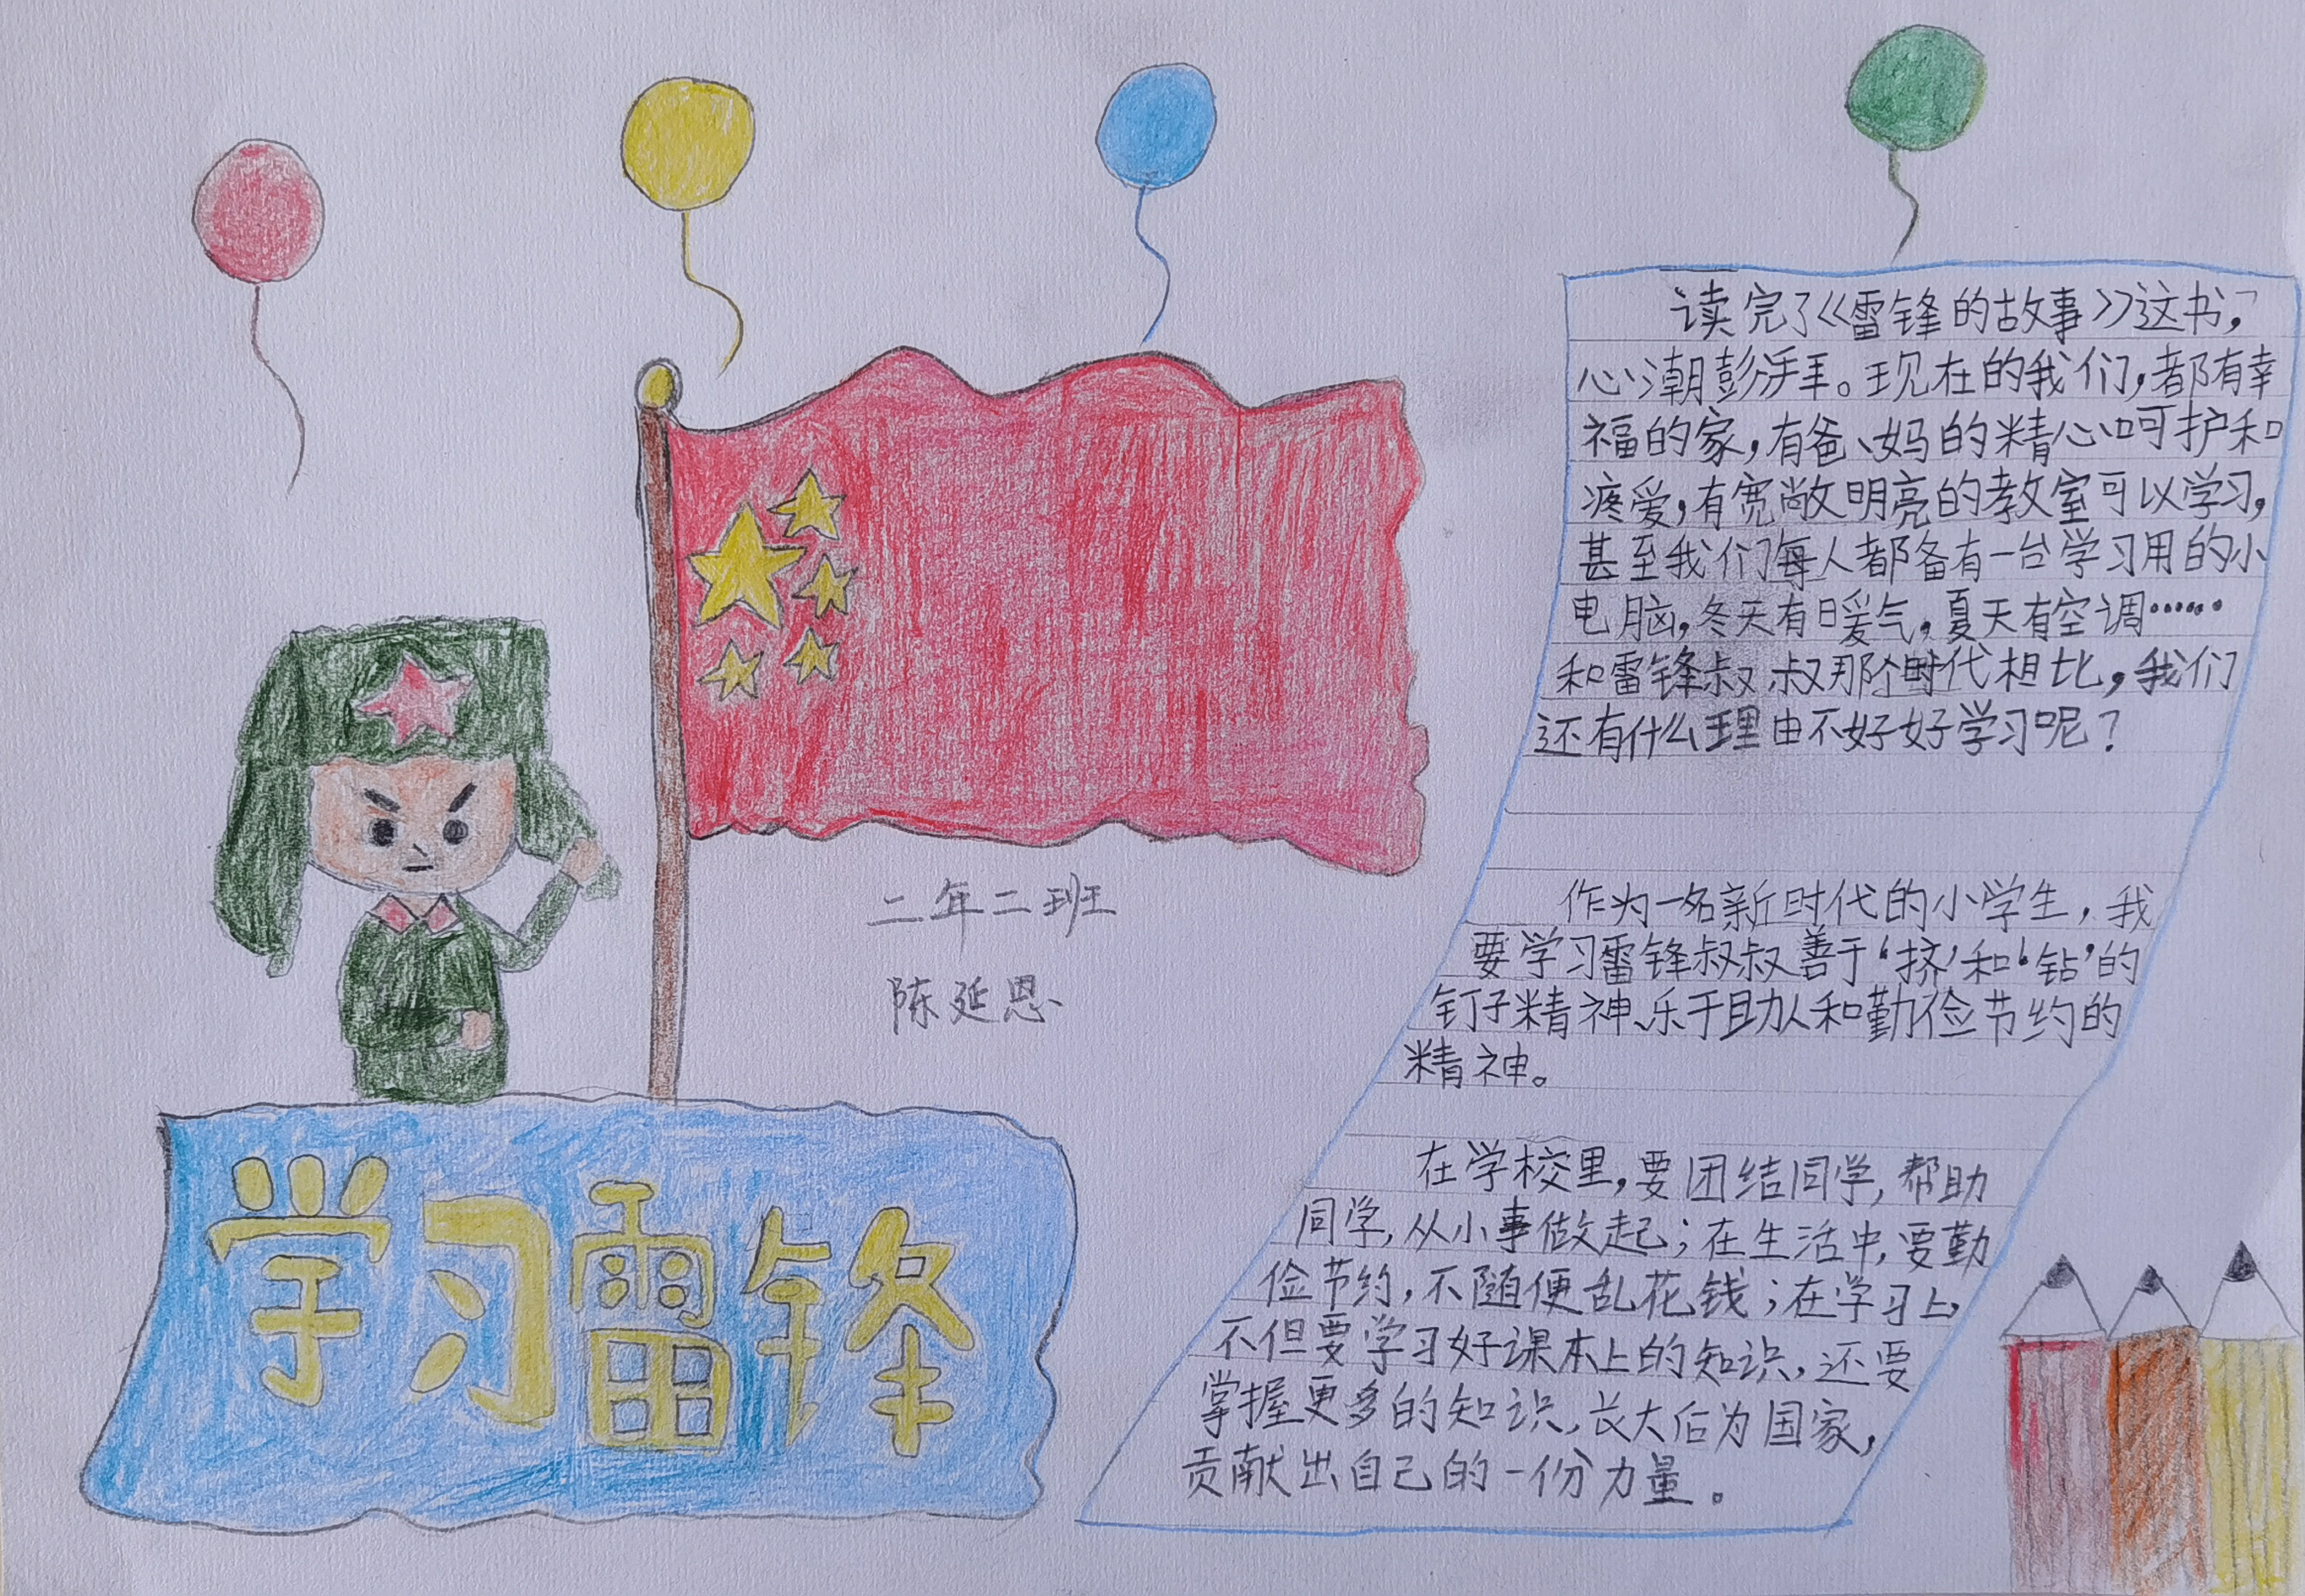 读完了《雷锋的故事》这书,
心潮彭湃。现在的我们,都有幸
福的家,有爸、妈的精心呵护和
疼爱,有宽敞明亮的教室可以学习,
甚至我们每人都备有一台学习用的小
电脑,冬天有暖气,夏天有空调……
和雷锋叔叔那个时代相比,我们
还有什么理由不好好学习呢?
二年二班
陈延恩
作为一名新时代的小学生,我
要学习雷锋叔叔善于‘挤’和‘钻’的
钉子精神、乐于助人和勤俭节约的
精神。
学习雷锋
在学校里,要团结同学,帮助
同学,从小事做起;在生活中,要勤
俭节约,不随便乱花钱;在学习上,
不但要学习好课本上的知识,还要
掌握更多的知识,长大后为国家,
贡献出自己的一份力量。